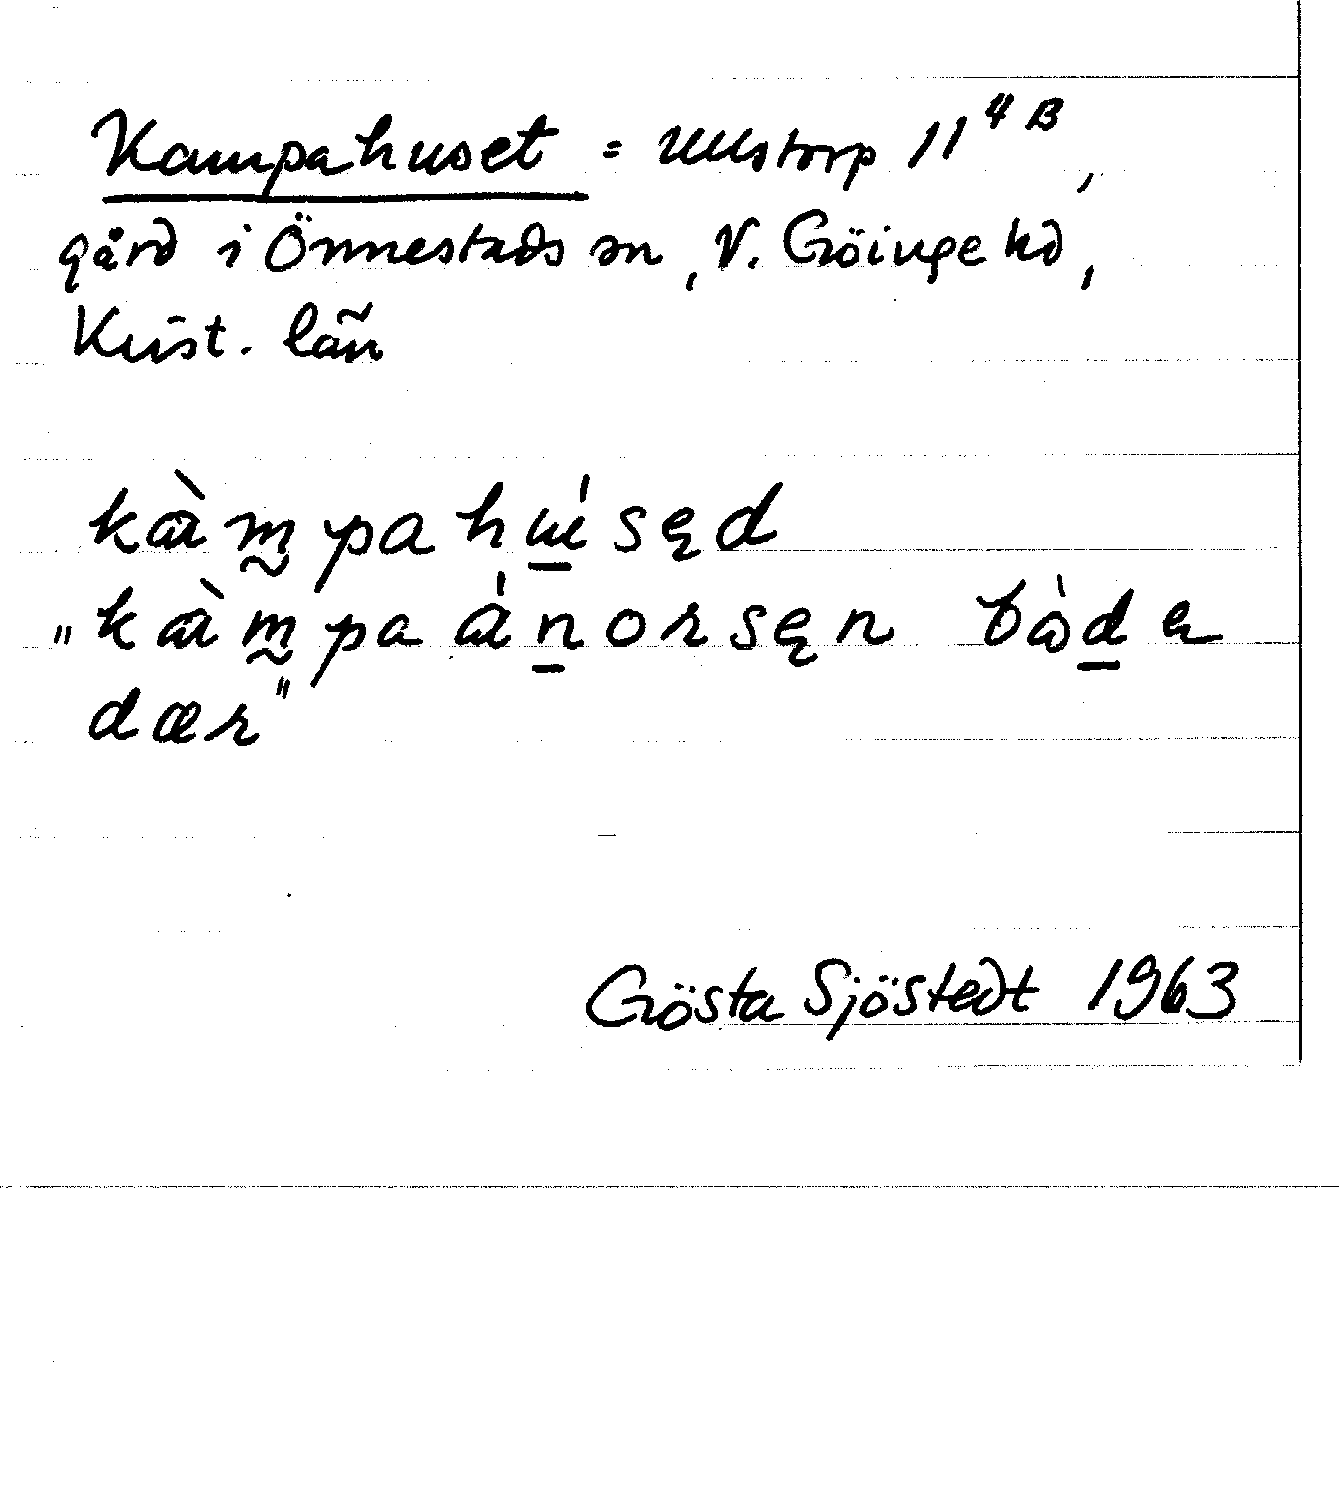 Kampahuset = Ullstorp 11 4 B,
gård i Önnestads sn, V. Göinge hd,
Krist. län
kàm̰pahú̱sęd
"kàm̰paáṉorsęn bòḏe
dær"
Gösta Sjöstedt 1963